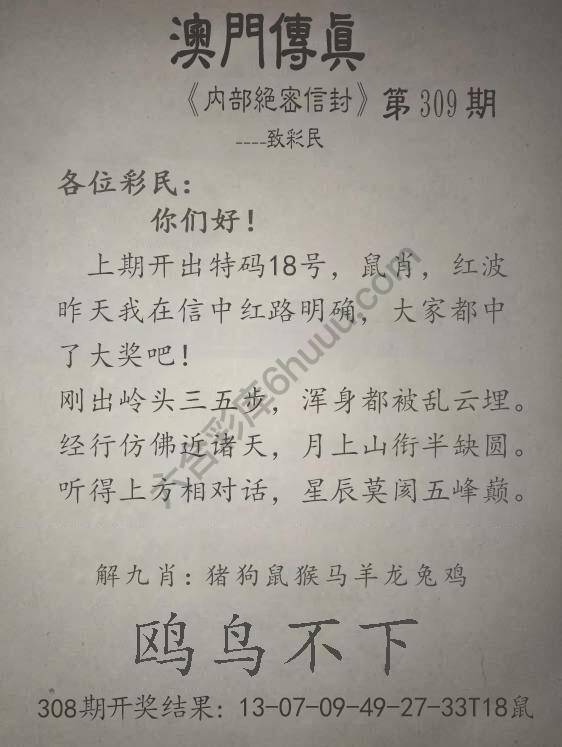 澳門傳真
《内部絕密信封》第309期
----致彩民
各位彩民：
你们好！
上期开出特码18号，鼠肖，红波
昨天我在信中红路明确，大家都中
了大奖吧！
刚出岭头三五步，浑身都被乱云埋。
经行仿佛近诸天，月上山衔半缺圆。
听得上方相对话，星辰莫阂五峰巅。
六合彩库6huuu.com
解九肖：猪狗鼠猴马羊龙兔鸡
鸥鸟不下
308期开奖结果：13-07-09-49-27-33T18鼠